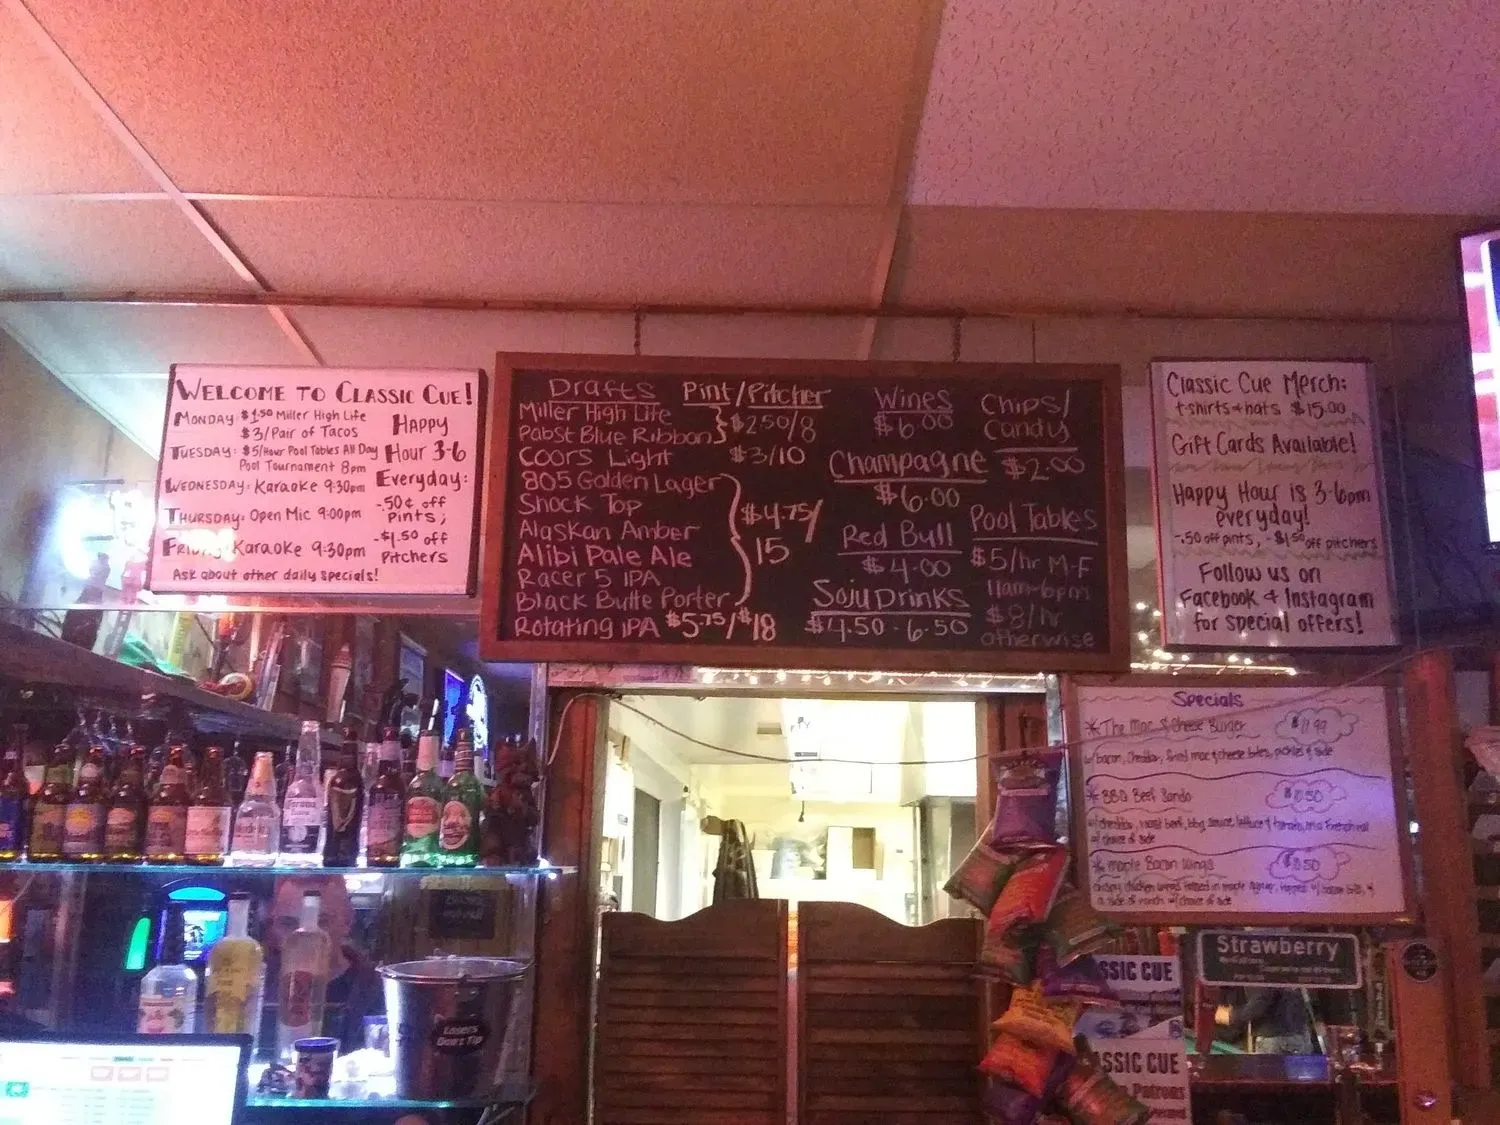 WELCOME TO CLASSIC CUE!
MONDAY: $1.50 Miller High Life
$3/Pair of Tacos
TUESDAY: $5/Hour Pool Tables All Day
Pool Tournament 8pm
WEDNESDAY: Karaoke 9:30pm
THURSDAY: Open Mic 9:00pm
FRIDAY: Karaoke 9:30pm
Ask about other daily specials!
HAPPY
Hour 3-6
Everyday:
-.50¢ off
pints;
-$1.50 off
pitchers
Drafts Pint/Pitcher
Miller High Life
Pabst Blue Ribbon
$2.50/8
Coors Light $3/10
805 Golden Lager
Shock Top
Alaskan Amber
Alibi Pale Ale
Racer 5 IPA
Black Butte Porter
$4.75/
15
Rotating IPA $5.75/$18
Wines
$6.00
Champagne
$6.00
Red Bull
$4.00
Soju Drinks
$4.50-6.50
Chips/
Candy
$2.00
Pool Tables
$5/hr M-F
11am-6pm
$8/hr
otherwise
Classic Cue Merch:
t-shirts+hats $15.00
Gift Cards Available!
Happy Hour is 3-6pm
everyday!
-.50 off pints, -$1.50 off pitchers
Follow us on
Facebook + Instagram
for special offers!
Specials
The Mac & Cheese Burger
w/ bacon, cheddar, fried mac & cheese bites, pickles & side
BBQ Beef Sando
w/ choice of side
Maple Bacon Wings
Strawberry
SSIC CUE
ASSIC CUE
Patrons
Corona
Losers
Don't Tip